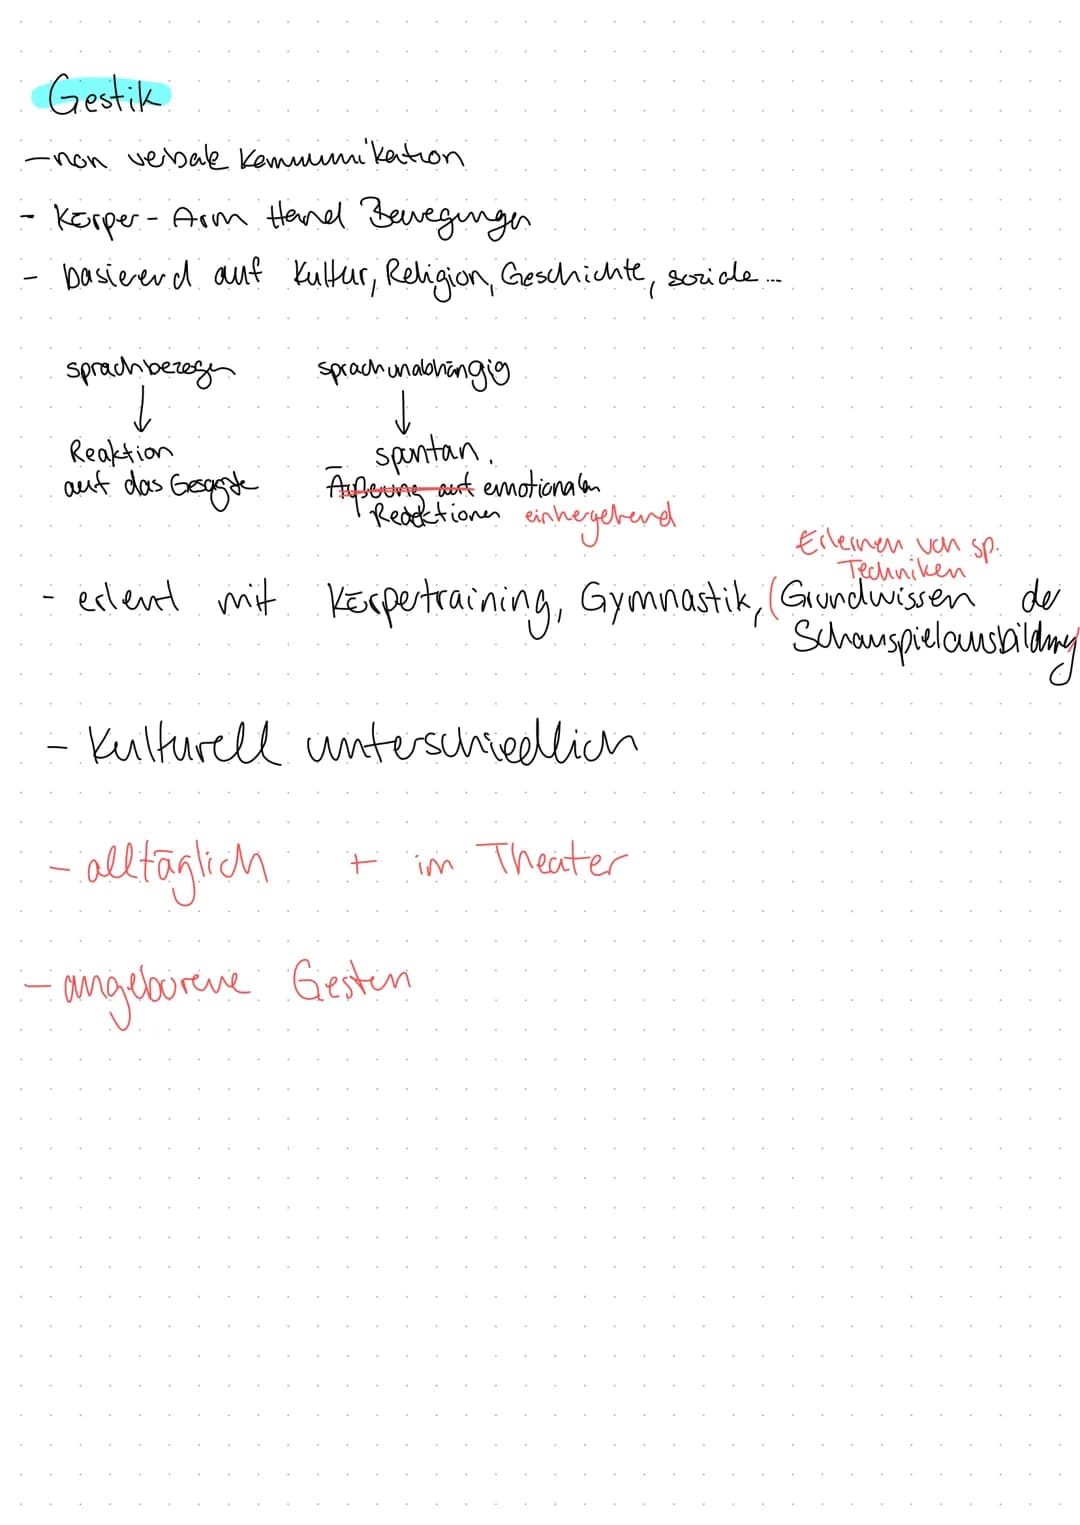 Gestik
- non verbale Kommunikation
- Körper - Arm Hand Bewegungen
- basierend auf Kultur, Religion, Geschichte, soziale ...
sprachbezogen sprachunabhängig
↓ ↓
Reaktion spontan.
auf das Gesagte Äußerung auf emotionalen
Reaktionen einhergehend
Erlernen von sp.
Techniken
- erlent mit Körpertraining, Gymnastik, (Grundwissen der
Schauspielausbildung
- Kulturell unterschiedlich
- alltäglich + im Theater
- angeborene Gesten